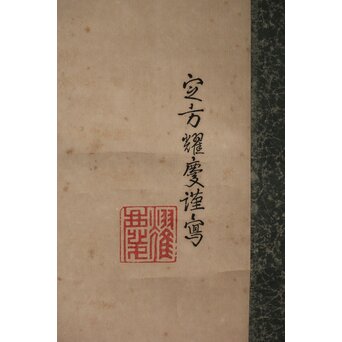 定方耀慶謹寫